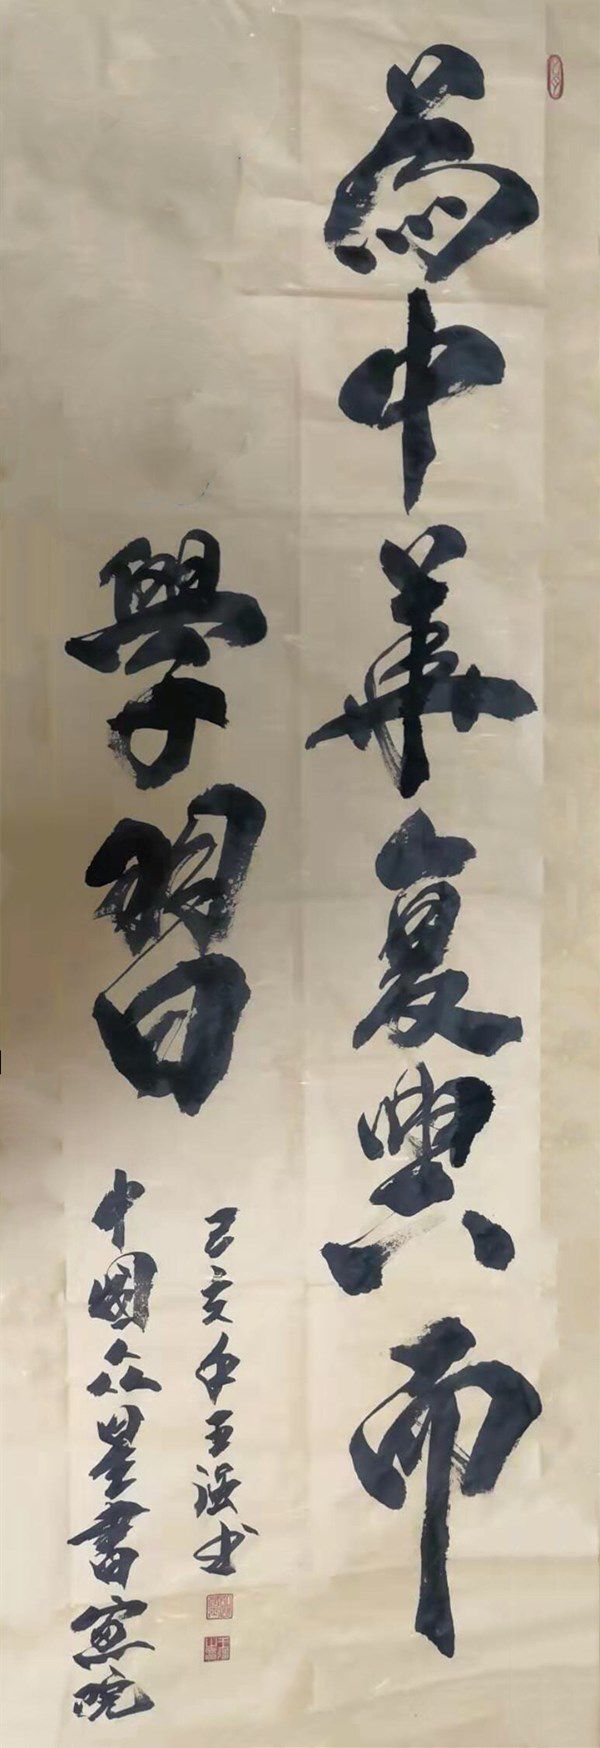 為中華复興而
學習
己亥年王强书
中國众星書畫院